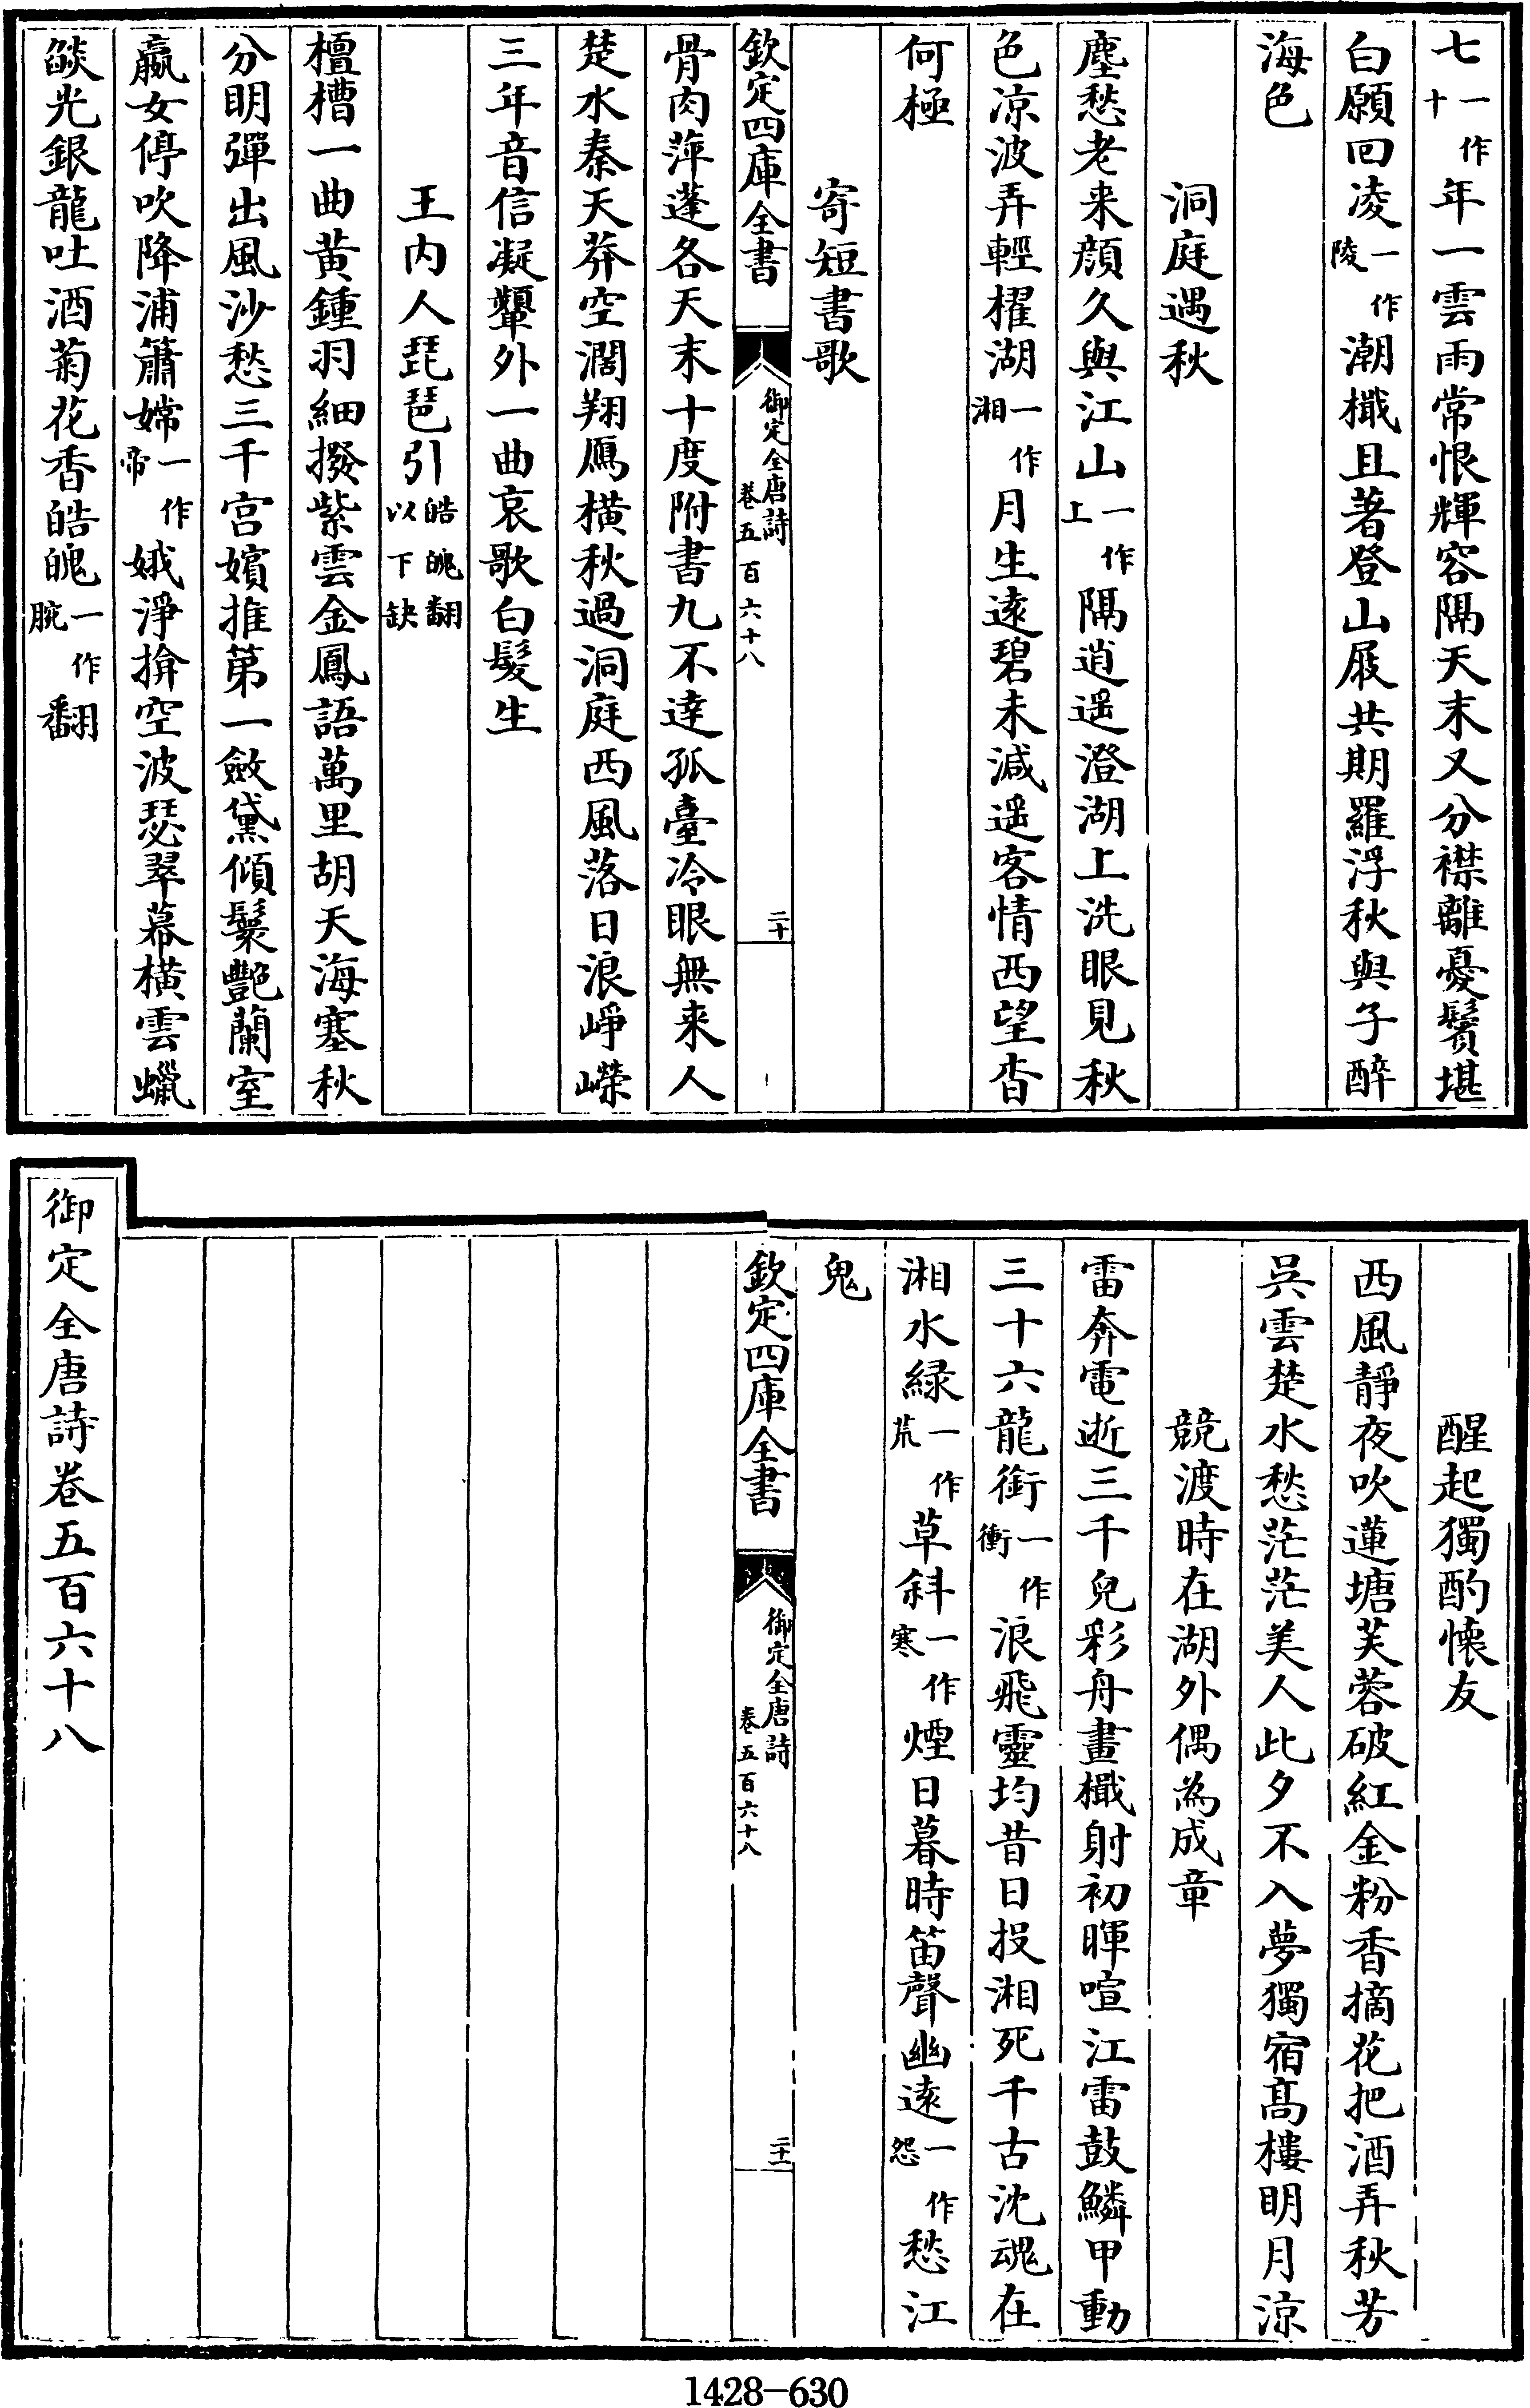 七一作十年一雲雨常恨輝容隔天末又分襟離憂鬢堪
白願回凌一作陵潮檝且著登山屐共期羅浮秋與子醉
海色
洞庭遇秋
塵愁老来顔久與江山一作上隔逍遥澄湖上洗眼見秋
色凉波弄輕櫂湖一作湘月生遠碧未減遥客情西望杳
何極
寄短書歌
欽定四庫全書
御定全唐詩
卷五百六十八
二十
骨肉萍蓬各天末十度附書九不達孤臺冷眼無来人
楚水秦天莽空濶翔鴈橫秋過洞庭西風落日浪崢嶸
三年音信凝顰外一曲哀歌白髮生
王内人琵琶引皓魄翻以下缺
檀槽一曲黄鍾羽細撥紫雲金鳳語萬里胡天海塞秋
分明彈出風沙愁三千宫嬪推第一斂黛傾鬟艷蘭室
嬴女停吹降浦簫嫦一作帝娥淨揜空波瑟翠幕橫雲蠟
燄光銀龍吐酒菊花香皓魄一作腕翻
醒起獨酌懐友
西風靜夜吹蓮塘芙蓉破紅金粉香摘花把酒弄秋芳
吳雲楚水愁茫茫美人此夕不入夢獨宿髙樓明月涼
競渡時在湖外偶為成章
雷奔電逝三千兒彩舟畫檝射初暉喧江雷鼓鱗甲動
三十六龍銜一作衝浪飛靈均昔日投湘死千古沈魂在
湘水緑一作荒草斜一作寒煙日暮時笛聲幽遠一作怨愁江
鬼
欽定四庫全書
御定全唐詩
卷五百六十八
二十一
御定全唐詩卷五百六十八
1428-630